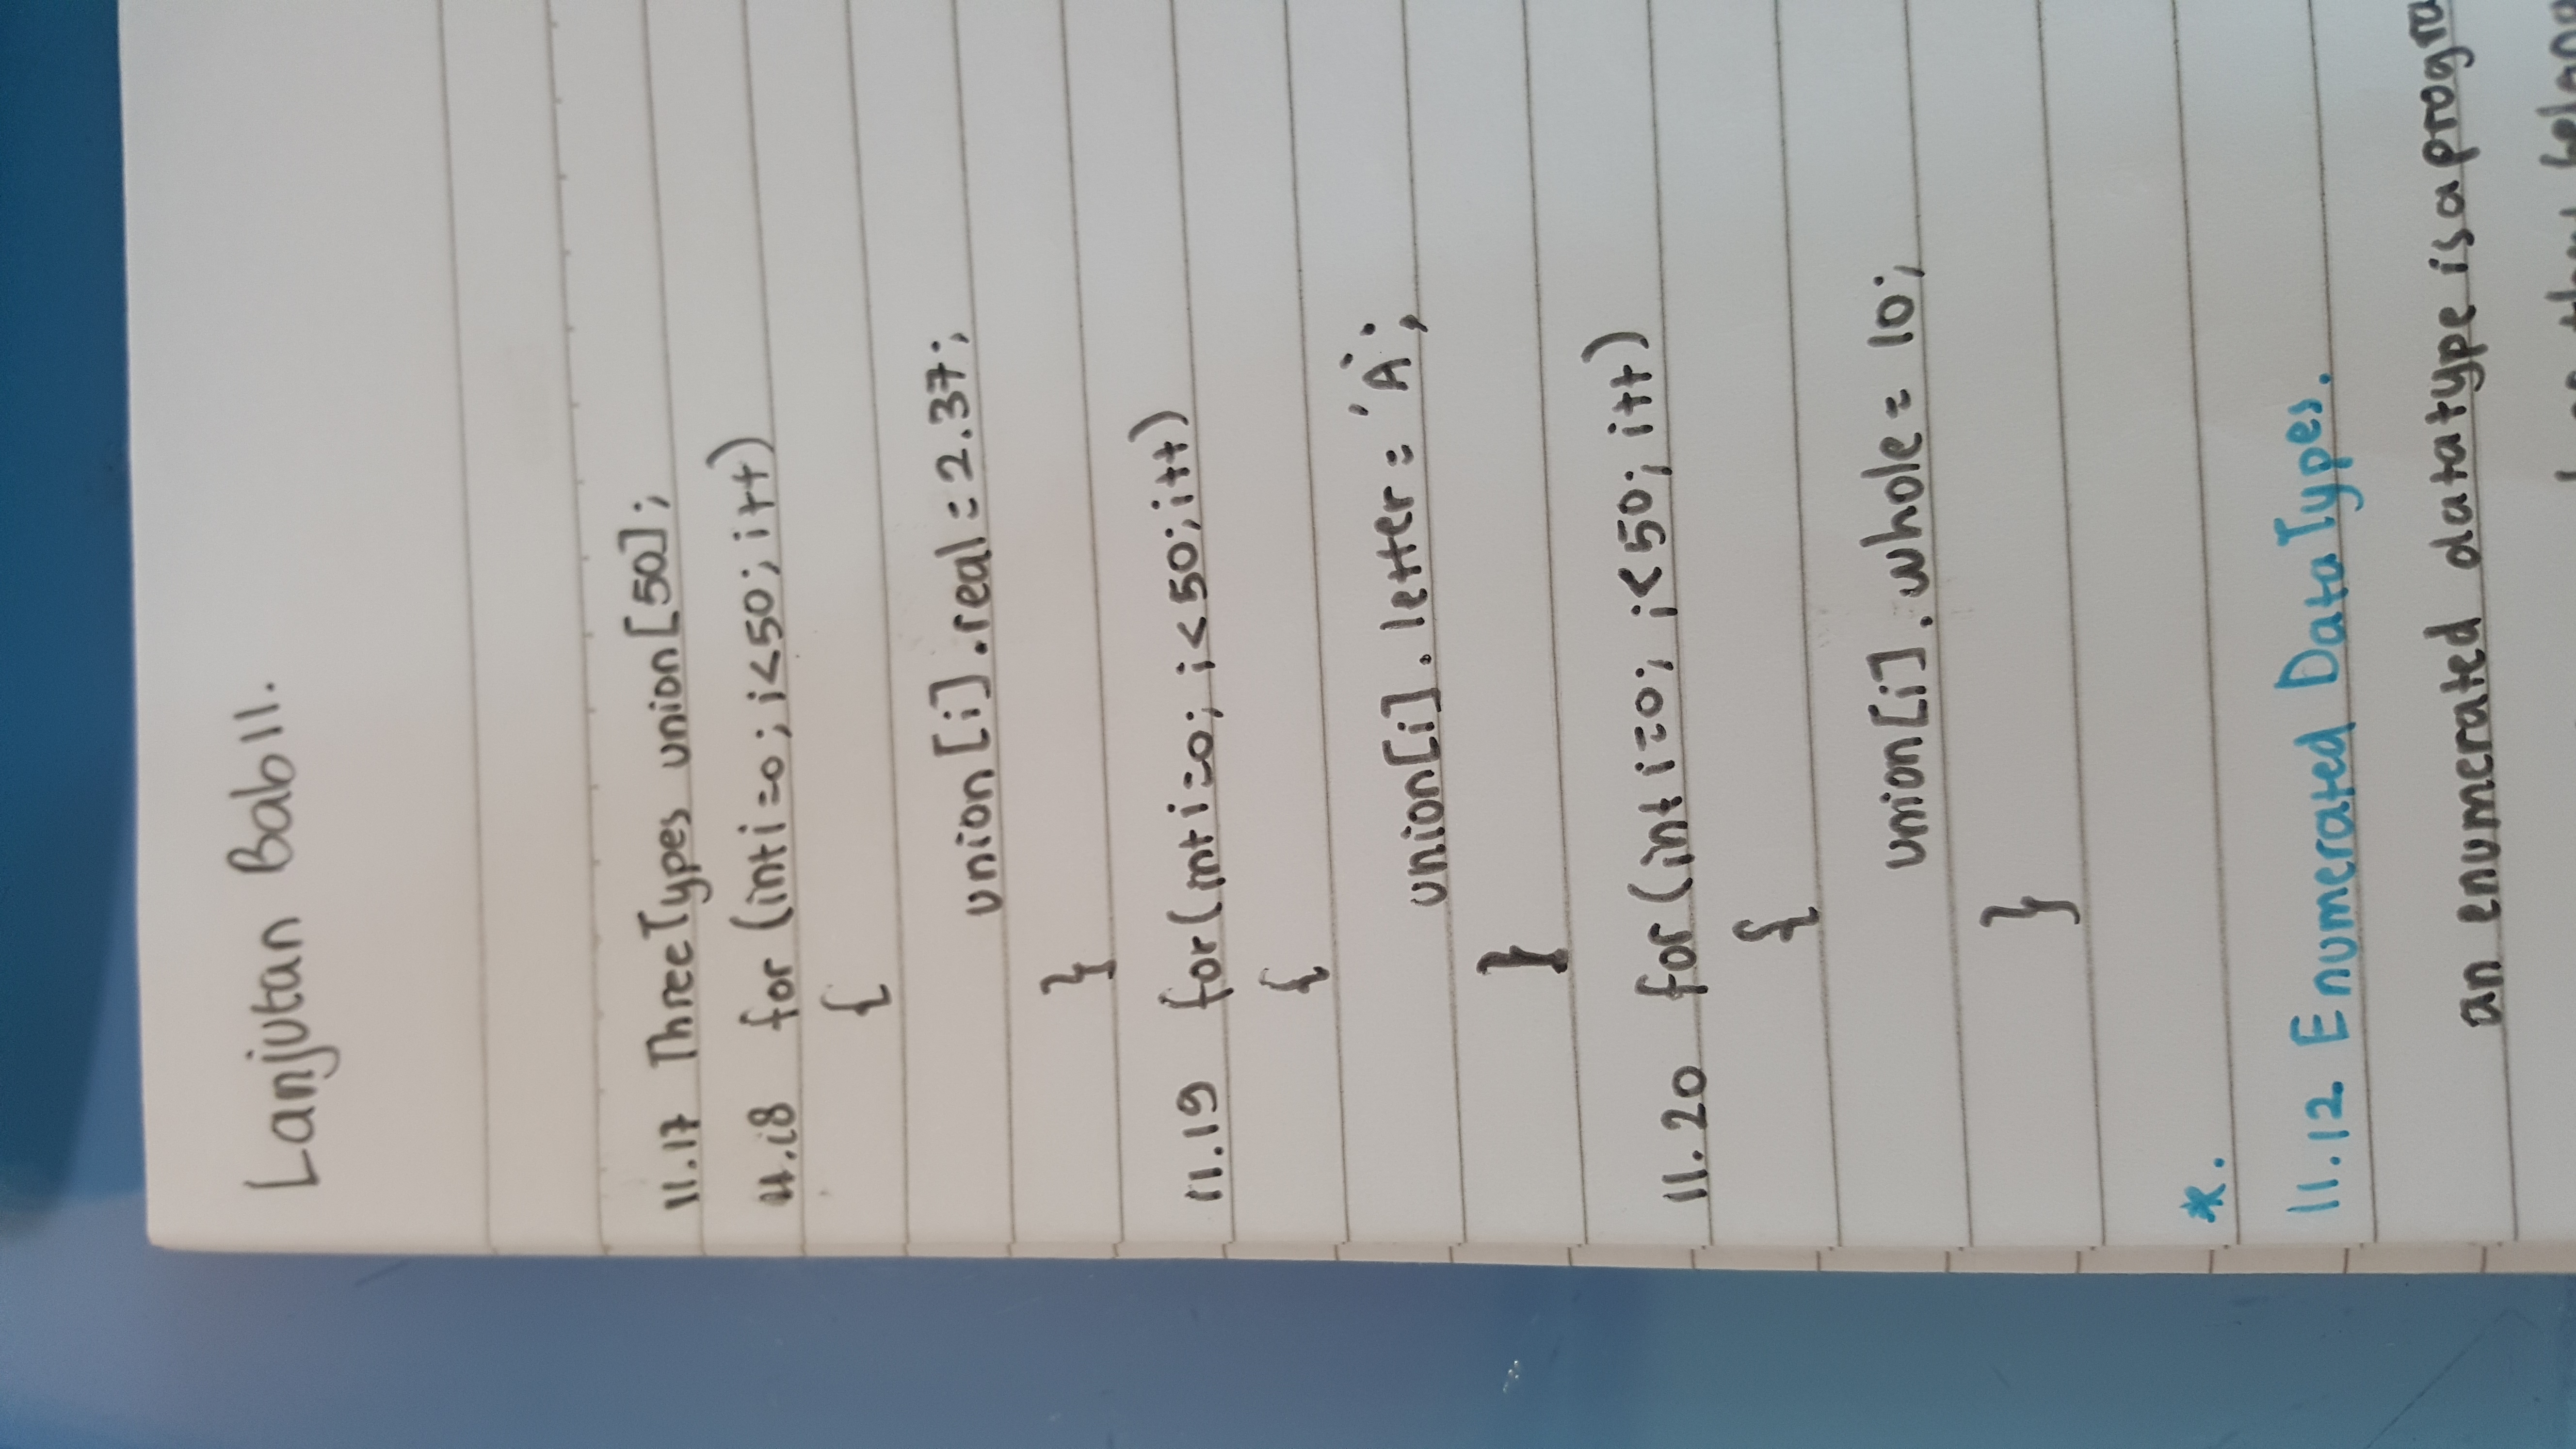 Lanjutan Bab 11.
11.17 ThreeTypes union[50];
11.18 for (int i=0; i<50; i++)
{
union[i].real = 2.37;
}
11.19 for(int i=0; i<50; i++)
{
union[i].letter = 'A';
}
11.20 for(int i=0; i<50; i++)
{
union[i].whole = 10;
}
*.
11.12 Enumerated Data Types.
an enumerated datatype is a progra
they belong